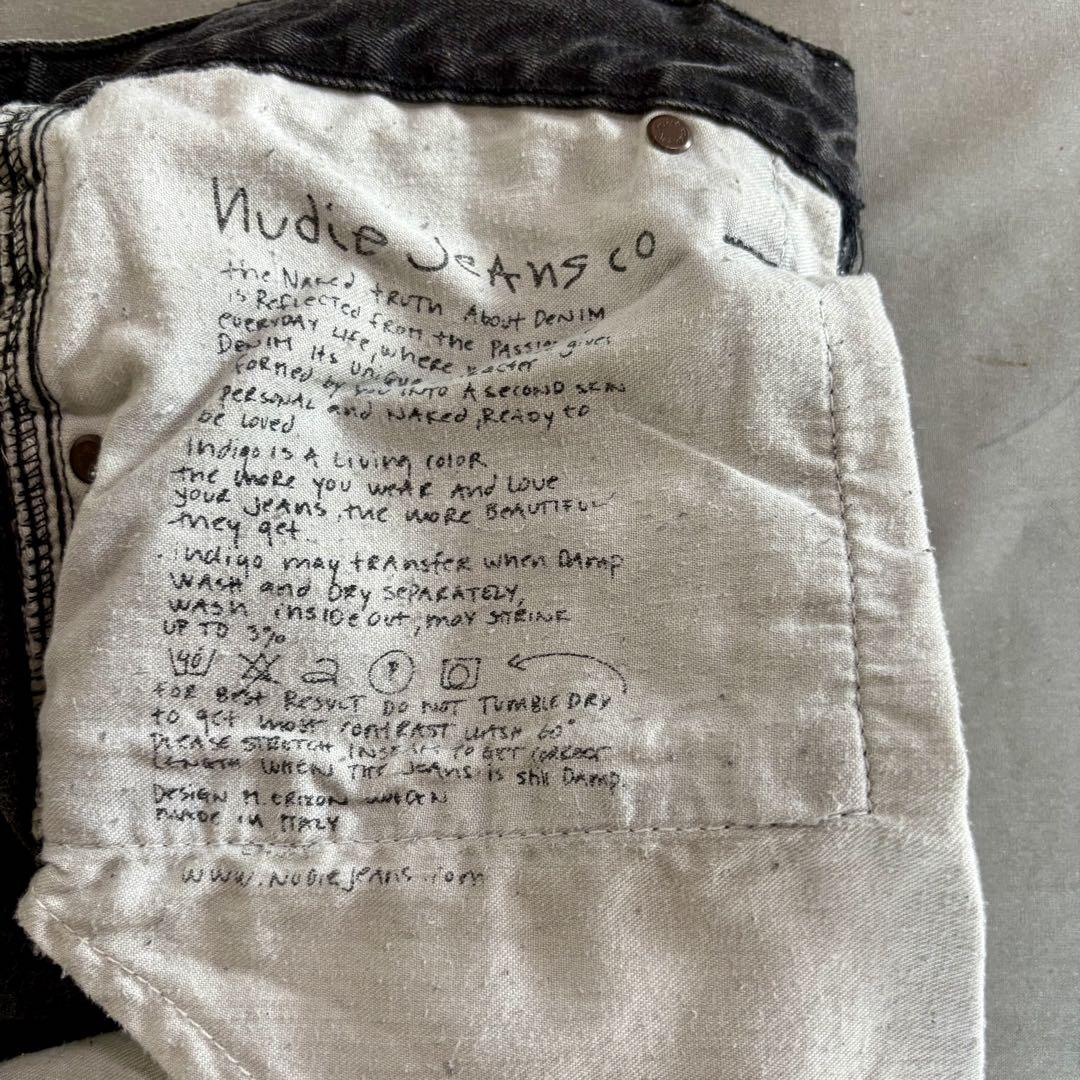 Nudie Jeans co
the Naked truth About Denim
is Reflected from the Passion gives
everyday life, where
Denim its unique
formed by you into A second skin
personal and Naked, Ready to
be loved
Indigo is A living color
the more you wear and love
your jeans, the more beautiful
they get
Indigo may transfer when Damp
wash and Dry separately,
wash inside out, may strink
up to 3%
40 P
for best result do not tumble dry
to get most contrast wash 60°
Please stretch to get correct
length when the jeans is still Damp.
Design M. Erixon
made in Italy
www.Nudiejeans.com